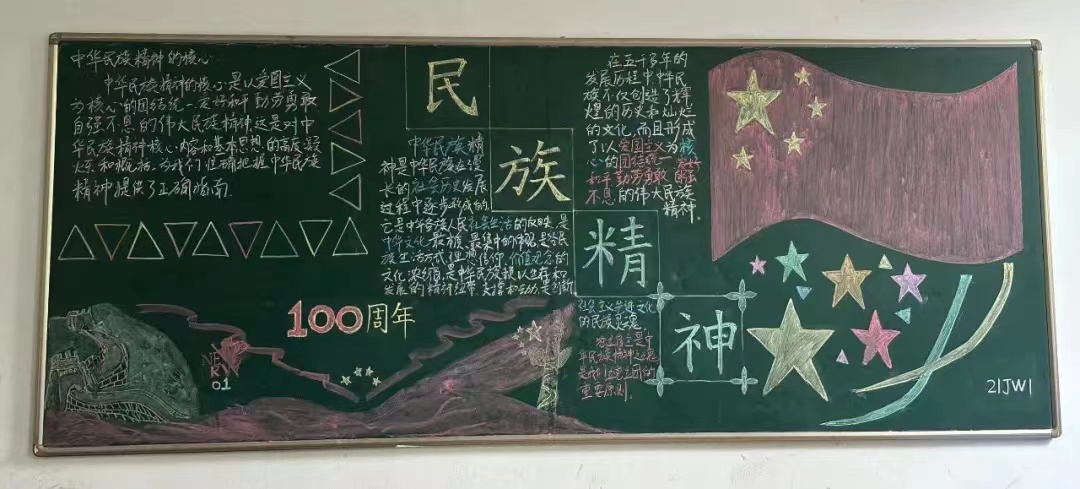 中华民族精神的核心
中华民族精神的核心是以爱国主义
为核心的团结统一爱好和平勤劳勇敢
自强不息的伟大民族精神这是对中
华民族精神核心内容和基本思想的高度凝
炼和概括为我们准确把握中华民族
精神提供了正确指南
民
族
精
神
中华民族精
神是中华民族在漫
长的社会历史发展
过程中逐步形成的
它是中华各族人民社会生活的反映是
中华文化最本质最集中的体现是各民
族生活方式理想信仰价值观念的
文化浓缩是中华民族赖以生存和
发展的精神纽带支撑和动力是创新
社会主义先进文化
的民族灵魂
独立自主是中
华民族精神之魂
是我们立党立国的
重要原则
在五千多年的
发展历程中中华民
族不仅创造了辉
煌的历史和灿烂
的文化而且形成
了以爱国主义为核
心的团结统一爱好
和平勤劳勇敢自强
不息的伟大民族
精神
100周年
01
21JW1